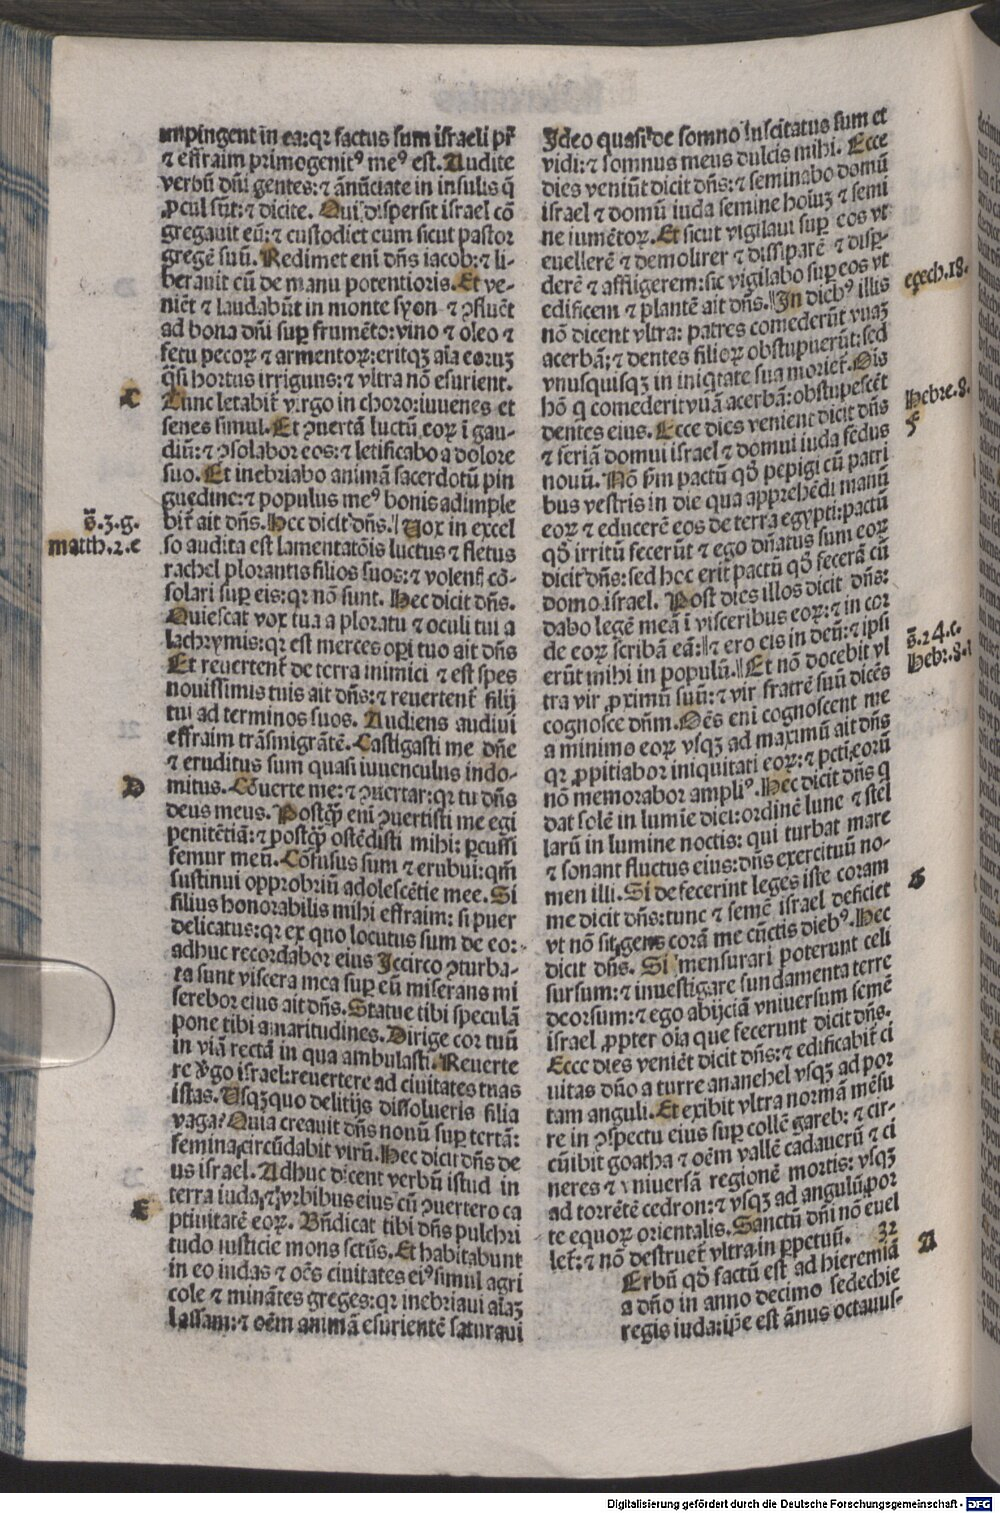 impingent in ea: qꝛ factus sum israeli pr̃
⁊ effraim primogenitꝰ meꝰ est. Audite
verbũ dñi gentes: ⁊ ãnũciate in insulis q̃
ꝓcul sũt: ⁊ dicite. Qui dispersit israel cõ
gregauit eũ: ⁊ custodiet eum sicut pastor
gregẽ suũ. Redimet eni dñs iacob: ⁊ li-
berauit eũ de manu potentioris. Et ve-
niẽt ⁊ laudabũt in monte syon ⁊ ↄfluẽt
ad bona dñi sup̱ frumẽto: vino ⁊ oleo ⁊
fetu pecoꝝ ⁊ armentoꝝ: eritqꝫ aĩa eoruꝫ
q̃si hortus irriguus: ⁊ vltra nõ esurient.
Tunc letabit᷑ virgo in choro: iuuenes et
senes simul. Et ↄuertã luctũ eoꝝ ĩ gau-
diũ: ⁊ ↄsolabor eos: ⁊ letificabo a dolore
suo. Et inebriabo animã sacerdotũ pin
guedine: ⁊ populus meꝰ bonis adimple
bit᷑ ait dñs. Hec dicit dñs. Uox in excel
so audita est lamentatõis luctus ⁊ fletus
rachel plorantis filios suos: ⁊ volent᷑ cõ-
solari sup̱ eis: qꝛ nõ sunt. Hec dicit dñs.
Quiescat vox tua a ploratu ⁊ oculi tui a
lachrymis: qꝛ est merces op̱i tuo ait dñs
Et reuertent᷑ de terra inimici ⁊ est spes
nouissimis tuis ait dñs: ⁊ reuertent᷑ filij
tui ad terminos suos. Audiens audiui
effraim trãsmigrãtẽ. Castigasti me dñe
⁊ eruditus sum quasi iuuenculus indo-
mitus. Cõuerte me: ⁊ ↄuertar: qꝛ tu dñs
deus meus. Postq̃ꝫ eni ↄuertisti me egi
penitẽtiã: ⁊ postq̃ꝫ ostẽdisti mihi: p̱cussi
femur meũ. Cõfusus sum ⁊ erubui: qm̃
sustinui opprobriũ adolescẽtie mee. Si
filius honorabilis mihi effraim: si puer
delicatus: qꝛ ex quo locutus sum de eo:
adhuc recordabor eius Iccirco ↄturba-
ta sunt viscera mea sup̱ eũ miserans mi
serebor eius ait dñs. Statue tibi speculã
pone tibi amaritudines. Dirige cor tuũ
in viã rectã in qua ambulasti. Reuerte
re ꝟgo israel: reuertere ad ciuitates tuas
istas. Usqꝫquo delitijs dissolueris filia
vaga? Quia creauit dñs nouũ sup̱ terrã:
femina circũdabit virũ. Hec dicit dñs de
us israel. Adhuc dicent verbũ istud in
terra iuda, ⁊ vrbibus eius cũ ↄuertero ca
ptiuitatẽ eoꝝ. Bñdicat tibi dñs pulchri
tudo iusticie mons sctũs. Et habitabunt
in eo iudas ⁊ oẽs ciuitates eiꝰ simul agri
cole ⁊ minãtes greges: qꝛ inebriaui aĩaꝫ
lassam: ⁊ oẽm animã esurientẽ saturaui
C
s̃.3.g.
matth.2.c
D
E
Ideo quasi de somno suscitatus sum et
vidi: ⁊ somnus meus dulcis mihi. Ecce
dies veniũt dicit dñs: ⁊ seminabo domũ
israel ⁊ domũ iuda semine hoĩuꝫ ⁊ semi
ne iumẽtoꝝ. Et sicut vigilaui sup̱ eos vt
euellerẽ ⁊ demolirer ⁊ dissiparẽ ⁊ disp̱-
derẽ ⁊ affligerem: sic vigilabo sup̱ eos vt
edificem ⁊ plantẽ ait dñs. In diebꝰ illis
nõ dicent vltra: patres comederũt vuaꝫ
acerbã: ⁊ dentes filioꝝ obstupuerũt: sed
vnusquisqꝫ in iniq̃tate sua moriet᷑. Oĩs
hõ q comederit vuã acerbã: obstupescẽt
dentes eius. Ecce dies venient dicit dñs
⁊ feriã domui israel ⁊ domui iuda fedus
nouũ. Nõ s̃m pactũ qð pepigi cũ patri
bus vestris in die qua apprehẽdi manũ
eoꝝ ⁊ educerẽ eos de terra egypti: pactũ
qð irritũ fecerũt ⁊ ego dñatus sum eoꝝ
dicit dñs: sed hoc erit pactũ qð ferã cũ
domo israel. Post dies illos dicit dñs:
dabo legẽ meã ĩ visceribus eoꝝ: ⁊ in cor
de eoꝝ scribã eã: ⁊ ero eis in deũ: ⁊ ipsi
erũt mihi in populũ. Et nõ docebit vl
tra vir ꝓximũ suũ: ⁊ vir fratrẽ suũ dicẽs
cognosce dñm. Oẽs eni cognoscent me
a minimo eoꝝ vsqꝫ ad maximũ ait dñs
qꝛ ꝓpitiabor iniquitati eoꝝ: ⁊ pcti eorũ
nõ memorabor ampliꝰ. Hec dicit dñs q
dat solẽ in lumie diei: ordinẽ lune ⁊ stel
larũ in lumine noctis: qui turbat mare
⁊ sonant fluctus eius: dñs exercituũ no-
men illi. Si defecerint leges iste coram
me dicit dñs: tunc ⁊ semẽ israel deficiet
vt nõ sit gens corã me cũctis diebꝰ. Hec
dicit dñs. Si mensurari poterunt celi
sursum: ⁊ inuestigare fundamenta terre
deorsum: ⁊ ego abijciã vniuersum semẽ
israel ꝓpter oĩa que fecerunt dicit dñs.
Ecce dies veniẽt dicit dñs: ⁊ edificabit᷑ ci
uitas dño a turre ananehel vsqꝫ ad por
tam anguli. Et exibit vltra normã mẽsu
re in ↄspectu eius sup̱ collẽ gareb: ⁊ cir-
cũibit goatha ⁊ oẽm vallẽ cadauerũ ⁊ ci
neres ⁊ vniuersã regionẽ mortis: vsqꝫ
ad torrẽtẽ cedron: ⁊ vsqꝫ ad angulũ por
te equoꝝ orientalis. Sanctũ dñi nõ euel
let᷑: ⁊ nõ destruet᷑ vltra in p̱petuũ. 32
Erbũ qð factũ est ad hieremiã
a dño in anno decimo sedechie
regis iuda: ip̃e est ãnus octauus-
ezech.18.
Hebre.8.
F
s̃.24.c.
Hebr.8.
G
A
Digitalisierung gefördert durch die Deutsche Forschungsgemeinschaft - DFG